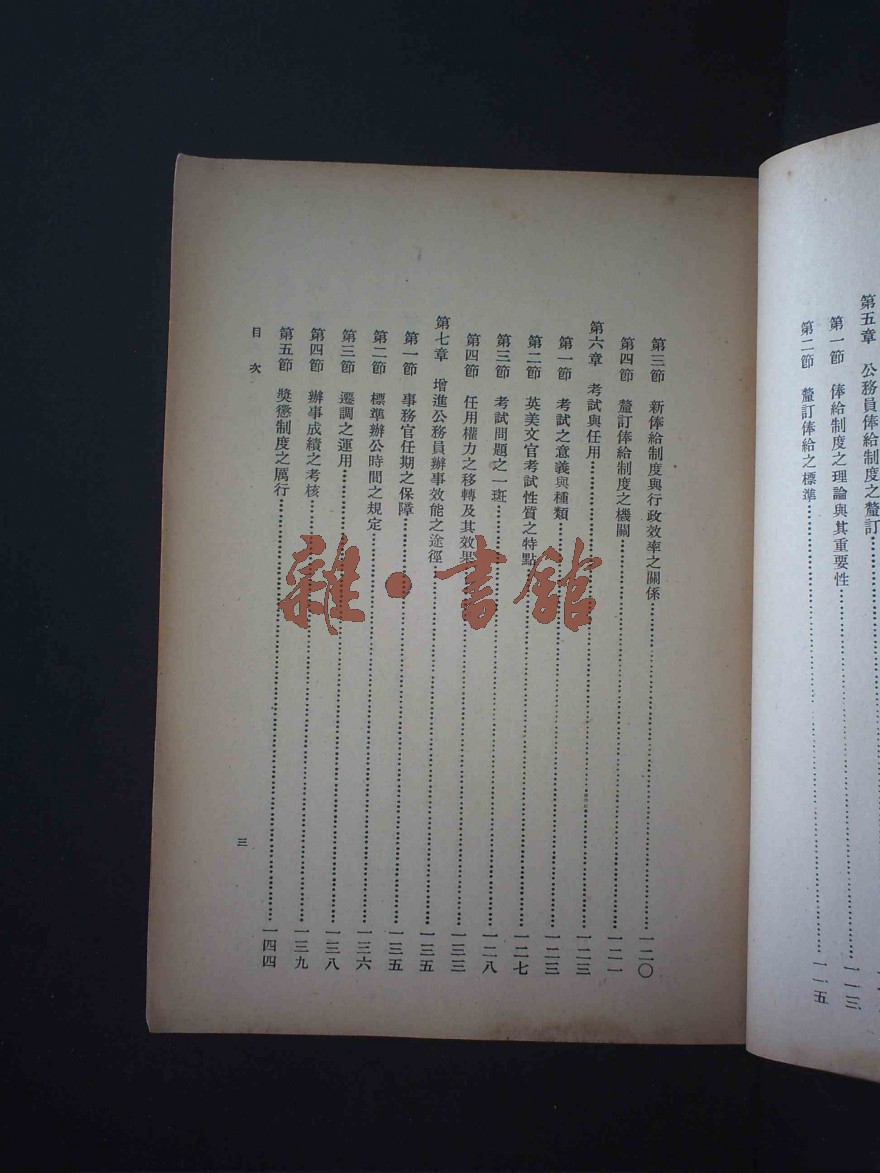 第五章 公務員俸給制度之釐訂
第一節 俸給制度之理論與其重要性 一一三
第二節 釐訂俸給之標準 一一五
第三節 新俸給制度與行政效率之關係 一二〇
第四節 釐訂俸給制度之機關 一二一
第六章 考試與任用 一二三
第一節 考試之意義與種類 一二三
第二節 英美文官考試性質之特點 一二七
第三節 考試問題之一斑 一二八
第四節 任用權力之移轉及其效果 一三三
第七章 增進公務員辦事效能之途徑 一三五
第一節 事務官任期之保障 一三五
第二節 標準辦公時間之規定 一三六
第三節 遷調之運用 一三八
第四節 辦事成績之考核 一三九
第五節 獎懲制度之厲行 一四四
目次
三
雜·書館